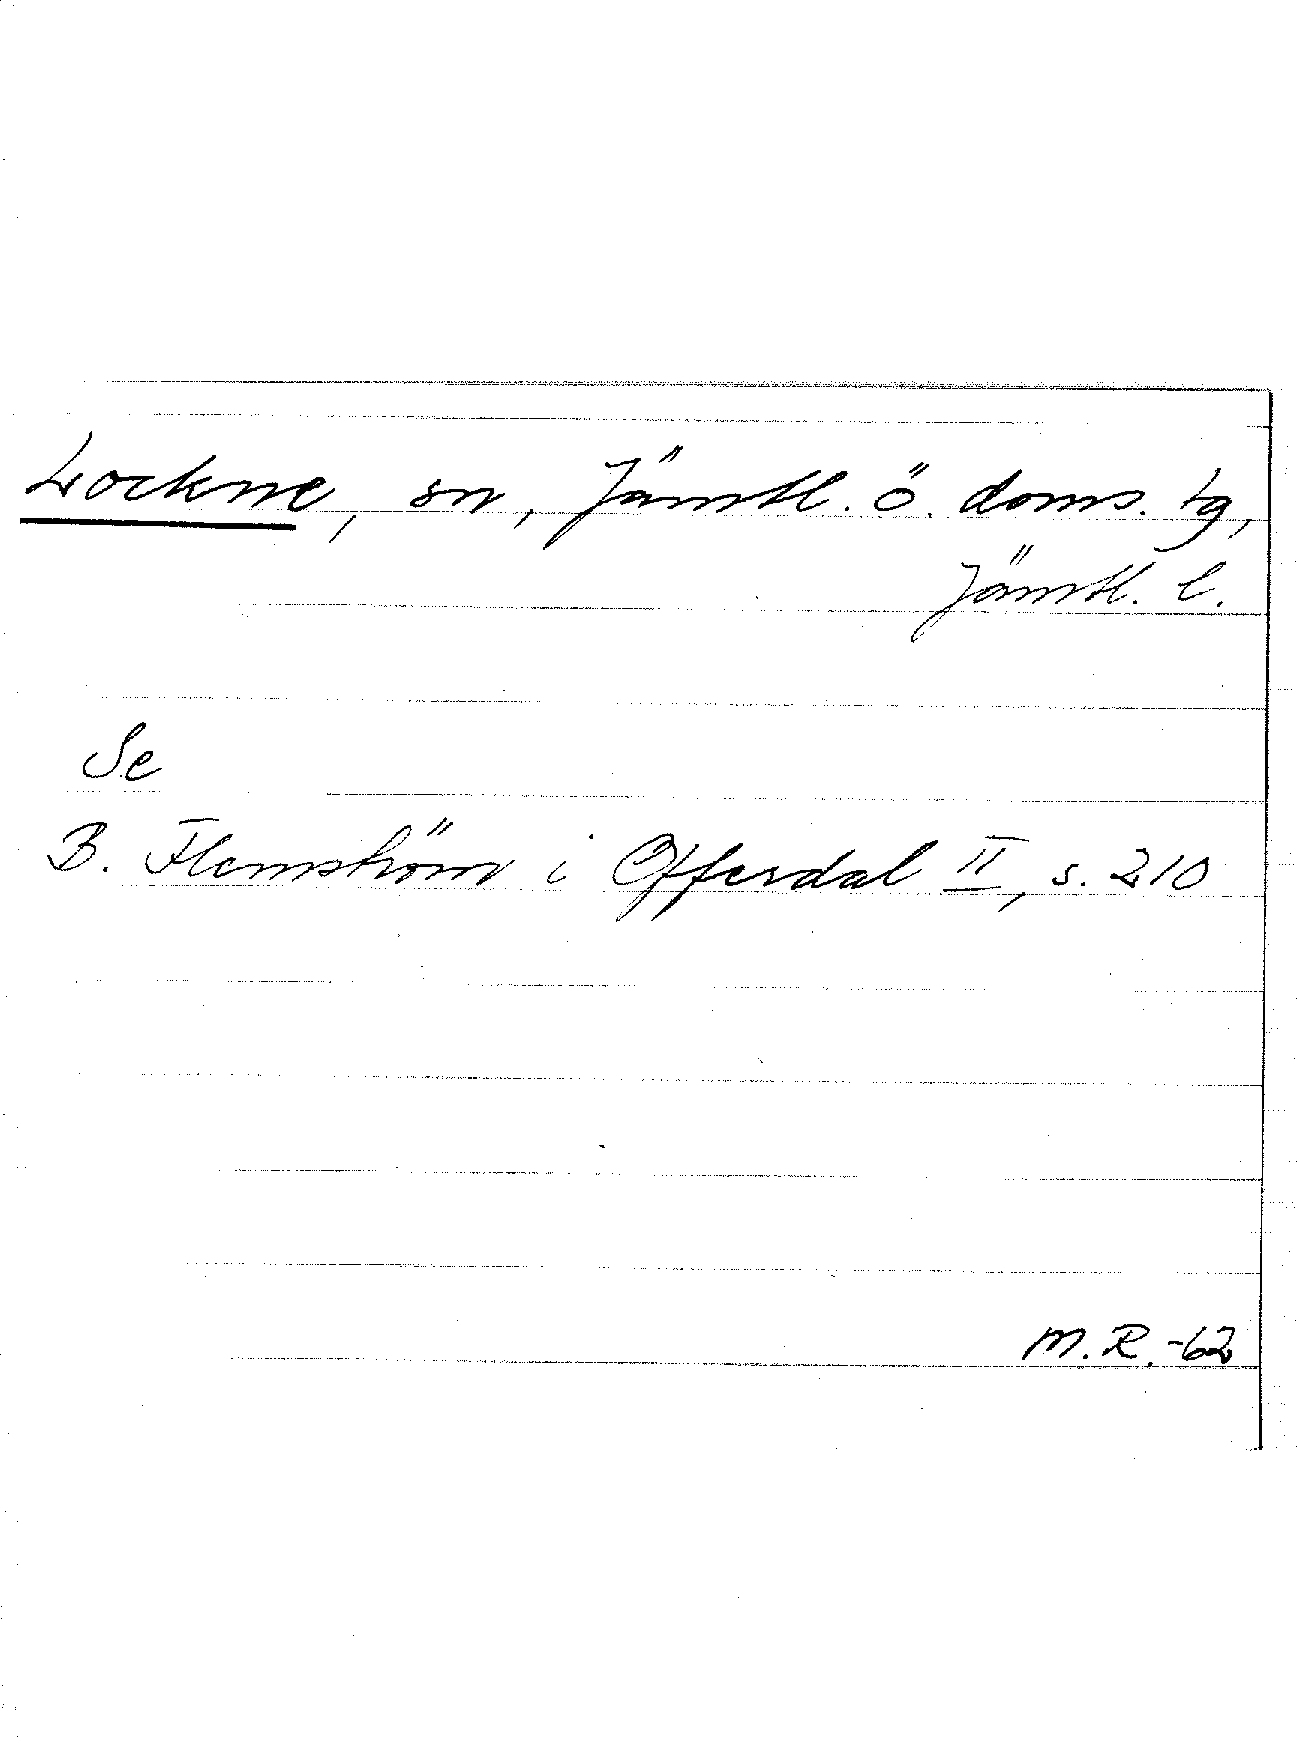 Lockne, sn, Jämtl. ö. doms. tg,
Jämtl. l.
Se
B. Flemström i Offerdal II, s. 210
M.R.-62